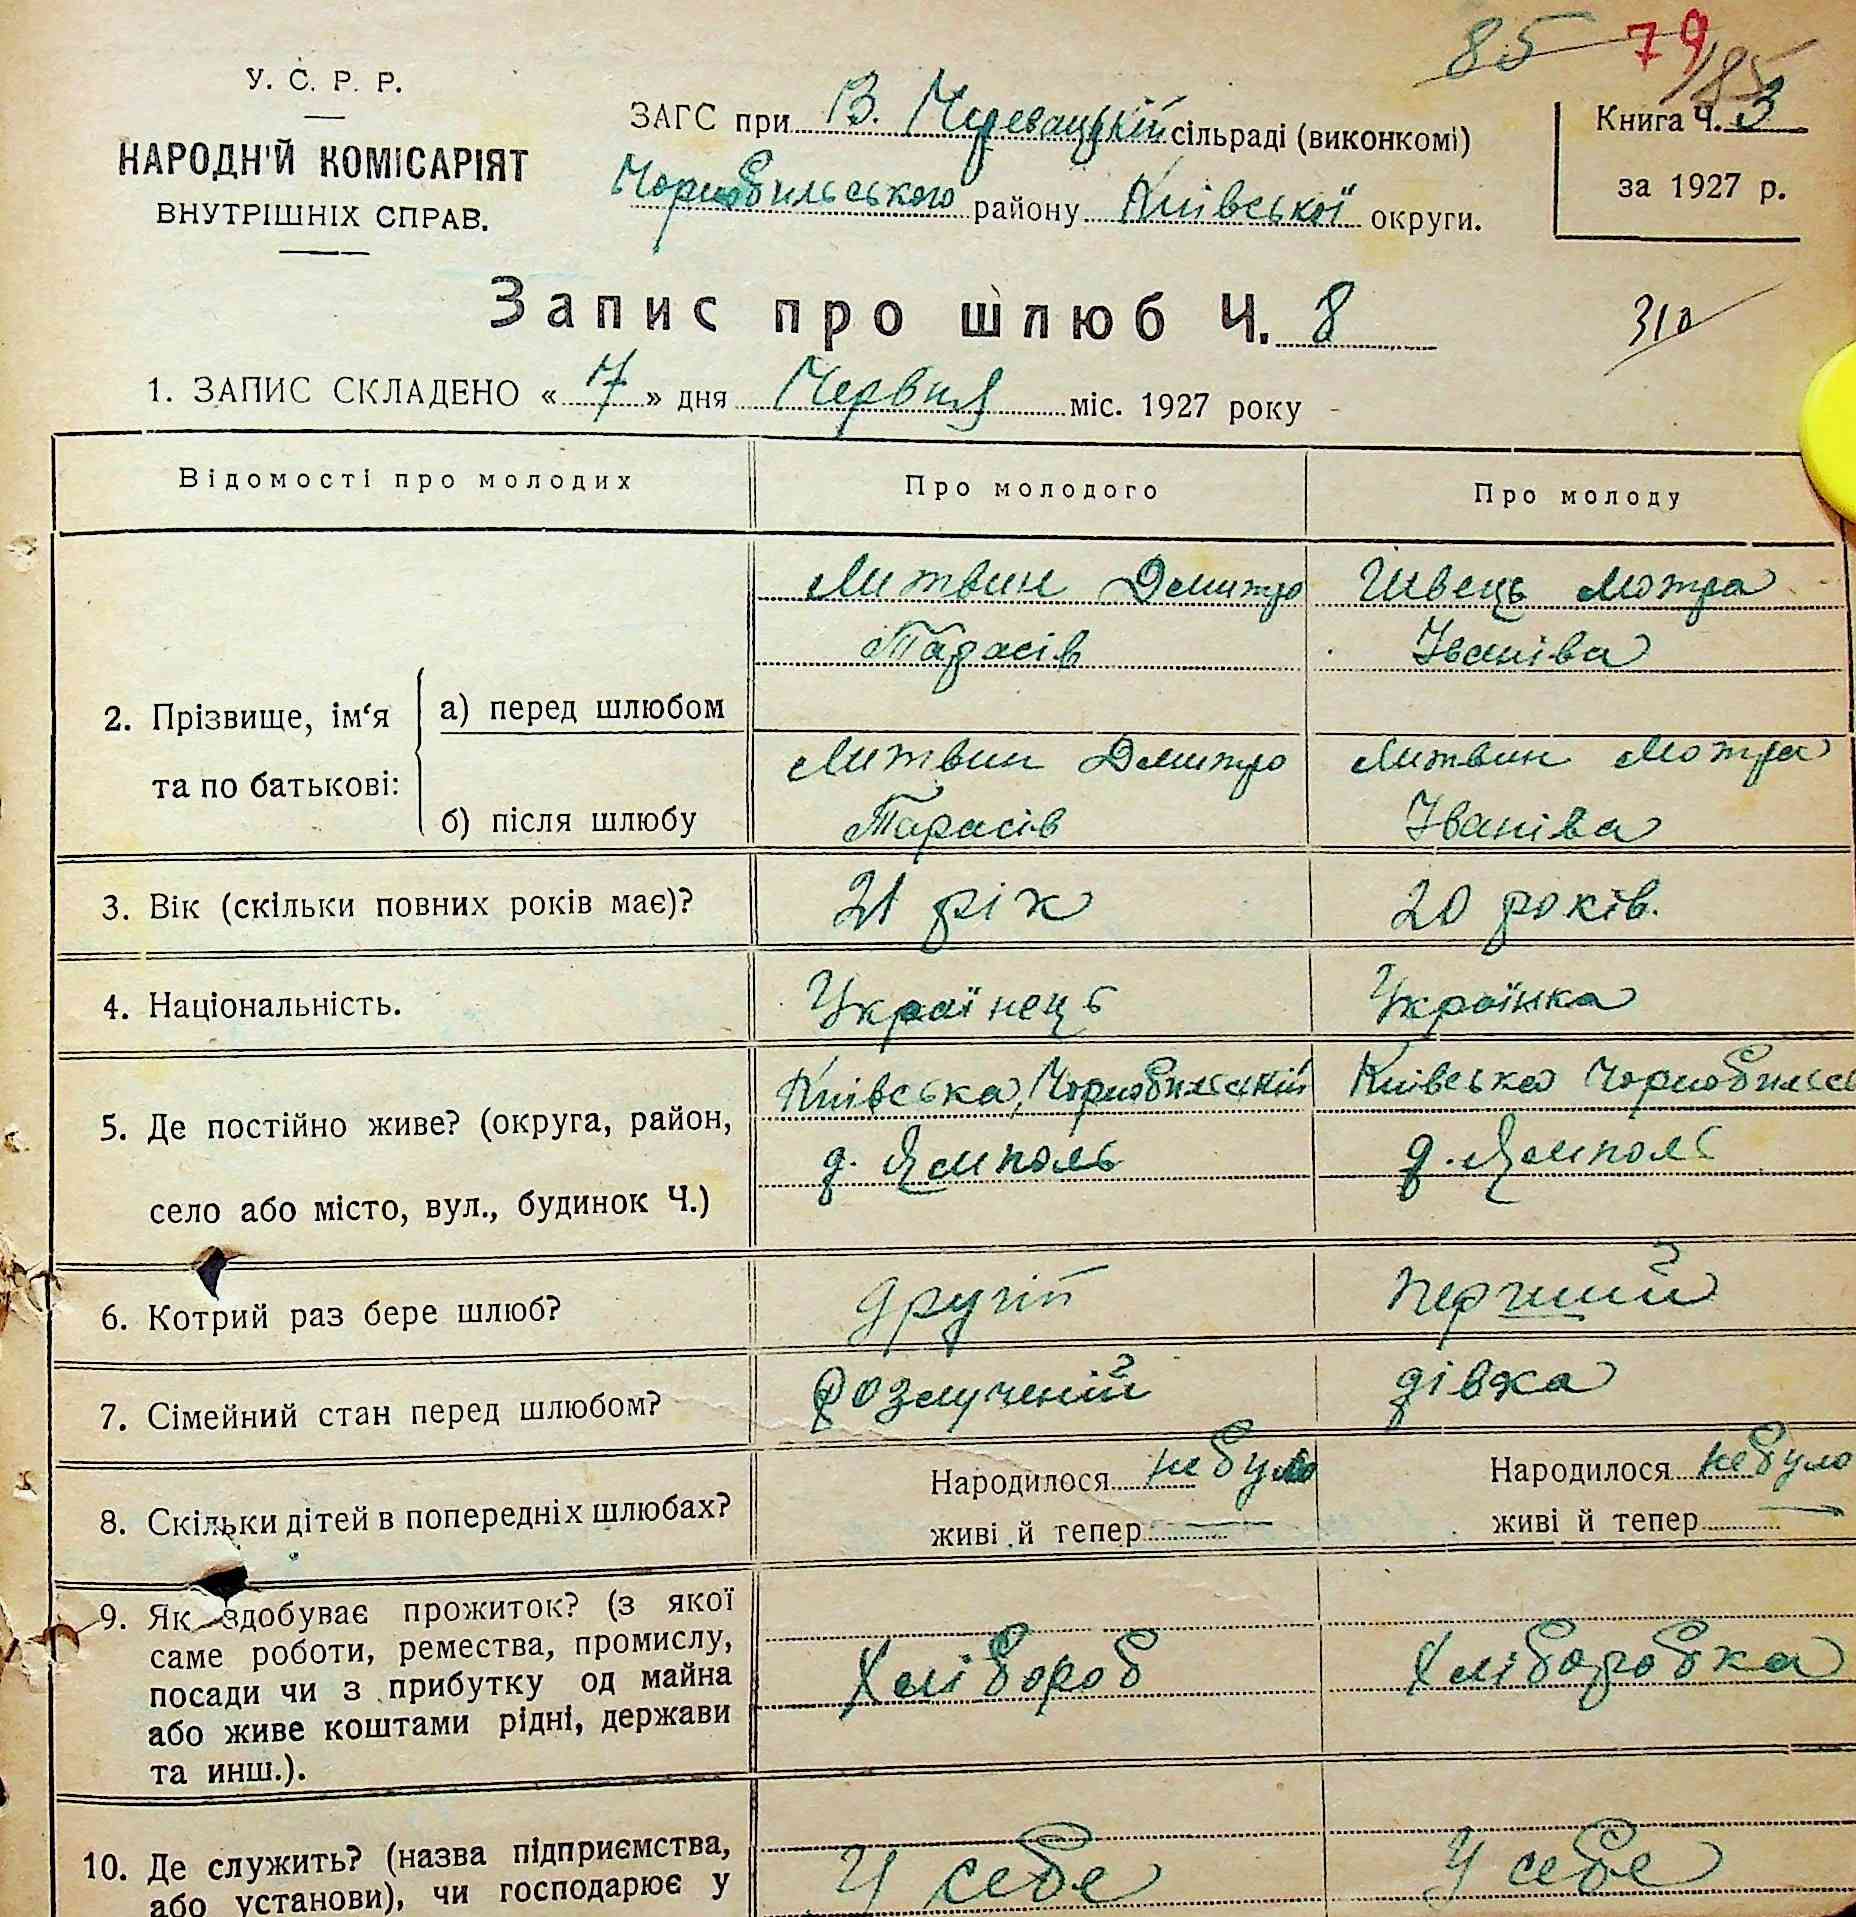 85 79
185
У. С. Р. Р.
НАРОДН'Й КОМІСАРІЯТ
ВНУТРІШНІХ СПРАВ.
ЗАГС при В. Черевацькій сільраді (виконкомі)
Чорнобильського району Київської округи.
Книга Ч. 3
за 1927 р.
Запис про шлюб Ч. 8
310
1. ЗАПИС СКЛАДЕНО « 7 » дня Червня міс. 1927 року
Відомості про молодих Про молодого Про молоду
2. Прізвище, ім'я та по батькові:
а) перед шлюбом
Литвин Дмитро
Тарасів
Швець Мотра
Іваніва
б) після шлюбу
Литвин Дмитро
Тарасів
Литвин Мотра
Іваніва
3. Вік (скільки повних років має)? 21 рік 20 років.
4. Національність. Українець Українка
5. Де постійно живе? (округа, район,
село або місто, вул., будинок Ч.)
Київська, Чорнобильський
д. Ямполь
Київська Чорнобильсь
д. Ямполь
6. Котрий раз бере шлюб? другій перший
7. Сімейний стан перед шлюбом? Розлученій дівка
8. Скільки дітей в попередніх шлюбах?
Народилося не було
живі й тепер —
Народилося не було
живі й тепер —
9. Як здобуває прожиток? (з якої
саме роботи, ремества, промислу,
посади чи з прибутку од майна
або живе коштами рідні, держави
та инш.).
Хлібороб
Хліборобка
10. Де служить? (назва підприємства,
або установи), чи господарює у
У себе
У себе